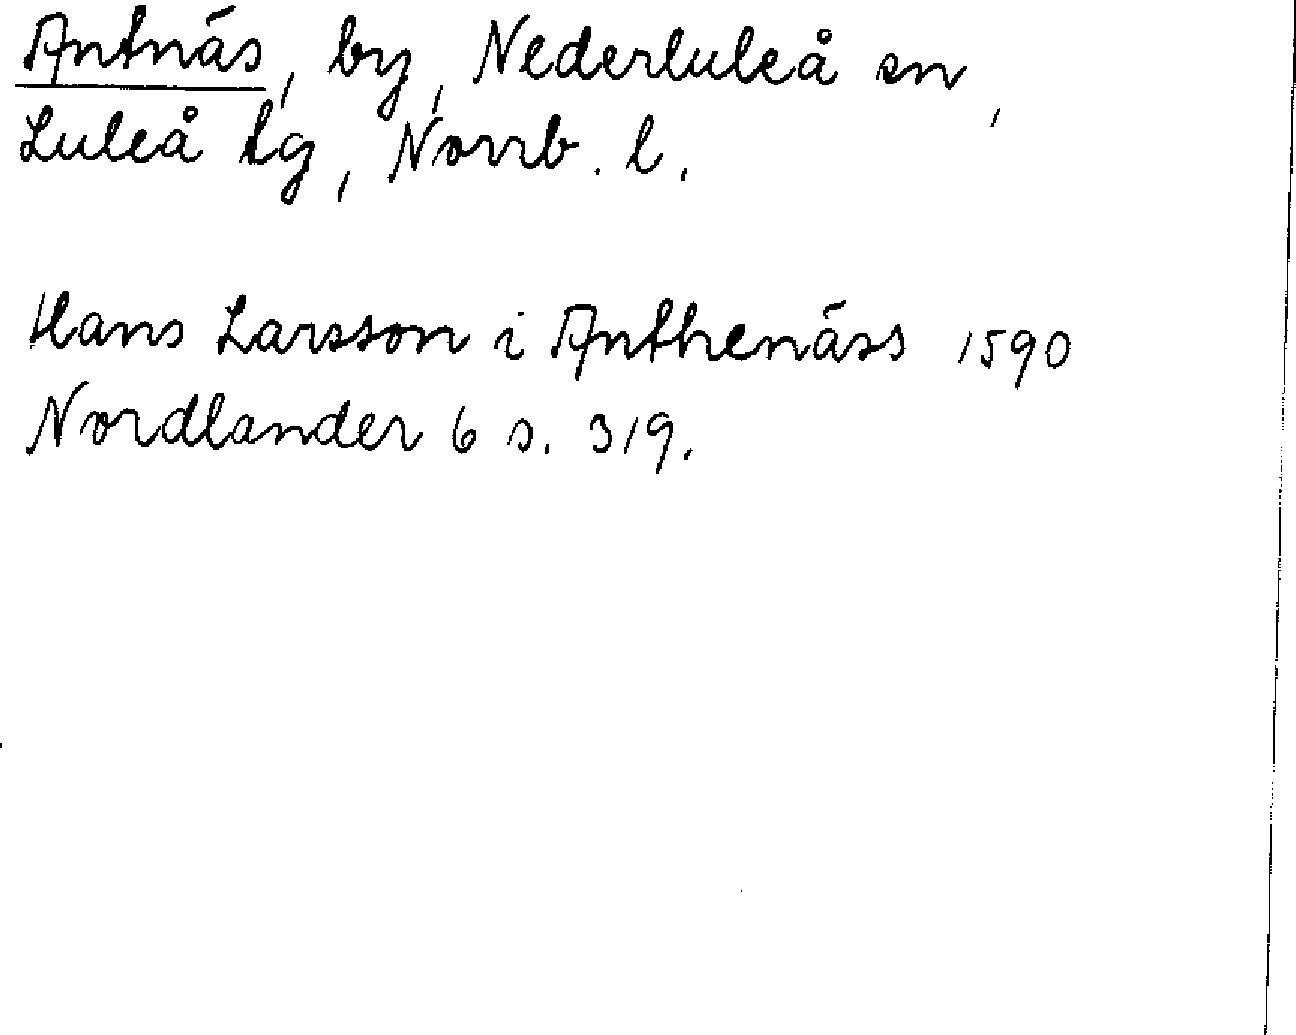 Antnäs, by, Nederluleå sn,
Luleå tg, Norrb. l.
Hans Larsson i Anthenäss 1590
Nordlander 6 s. 319.